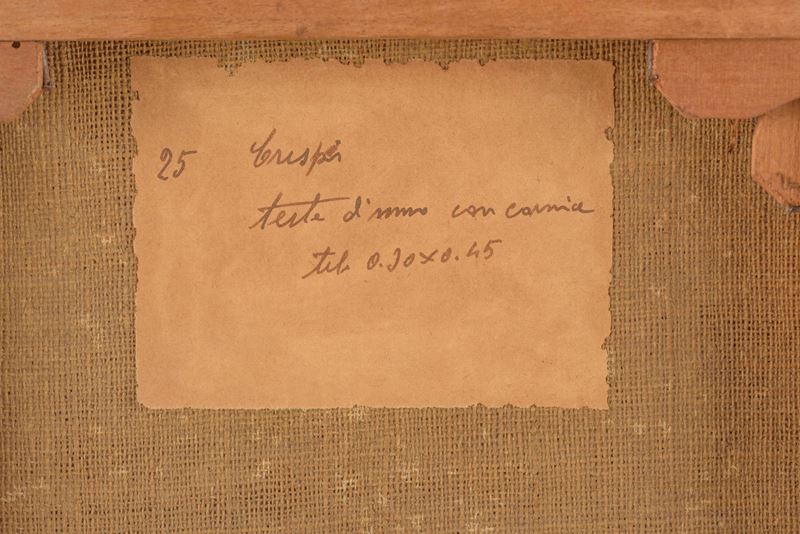 25 Crespi
teste d'uomo con cornice
tela 0.30x0.45